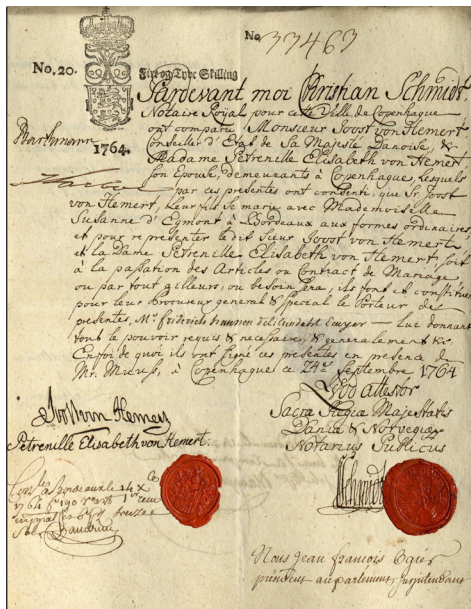 No 33463
No. 20.
Fire og Tyve Skilling
1764.
Pardevant moi Christian Schmidt
Notaire Royal pour cette Ville de Copenhague
ont comparu Monsieur Joost von Hemert
Conseiller d'Etat de Sa Majesté Danoise, &
Madame Petrenille Elisabeth von Hemert
son Epouse, demeurants à Copenhague, lesquels
par ces presentes ont consenti, que Sr. Joost
von Hemert, leur fils se marie avec Mademoiselle
Susanne d'Egmont à Bordeaux aux formes ordinaires,
et pour representer le dit Sieur Joost von Hemert
et la Dame Petrenille Elisabeth von Hemert, soit
à la passation des Articles ou Contract de Mariage
ou par tout ailleurs, ou besoin sera, ils font et constituent
pour leur Procureur general & special le Porteur des
presentes, Mr. Ecuyer — Lui donnant
tout le pouvoir requis & necessaire, & generalement &c.
En foi de quoi ils ont signé ces presentes en presence de
Mr. à Copenhague ce 24e. Septembre 1764
Quod attestor
Joost von Hemert
Sacræ Regiæ Majestatis
Daniæ & Norvegiæ
Petrenille Elisabeth von Hemert.
Notarius Publicus
Schmidt
Bordeaux le 14 Xbre
1764
Nous Jean francois Ogier
président au parlement, surjntendant